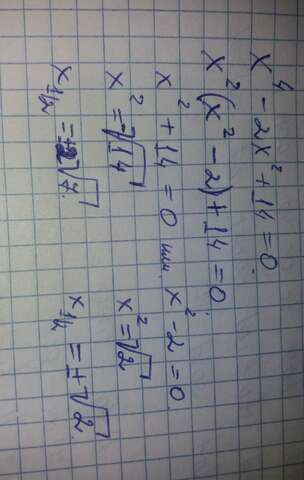 x⁴ - 2x² + 14 = 0
x²(x² - 2) + 14 = 0
x² + 14 = 0 или x² - 2 = 0
x² = √14 x² = √2
x₁/₂ = ±√7. x₁/₂ = ±√2